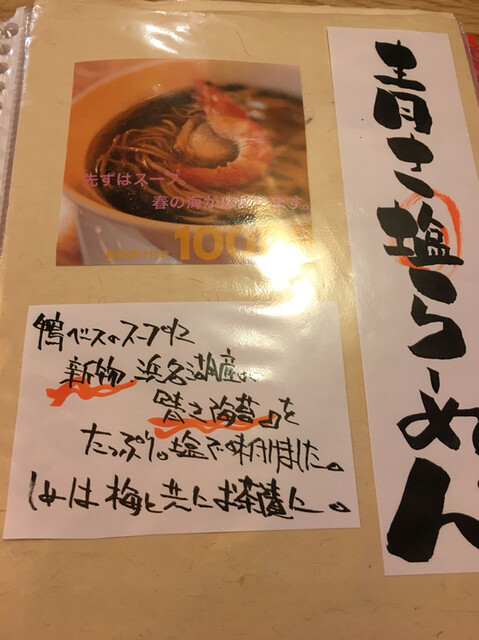 青さ塩らーめん
先ずはスープ
春の海が広がります。
100
鴨ベースのスープに
新物 浜名湖産の
「青さ海苔」を
たっぷり。塩で味付けました。
〆は梅と共にお茶漬に。